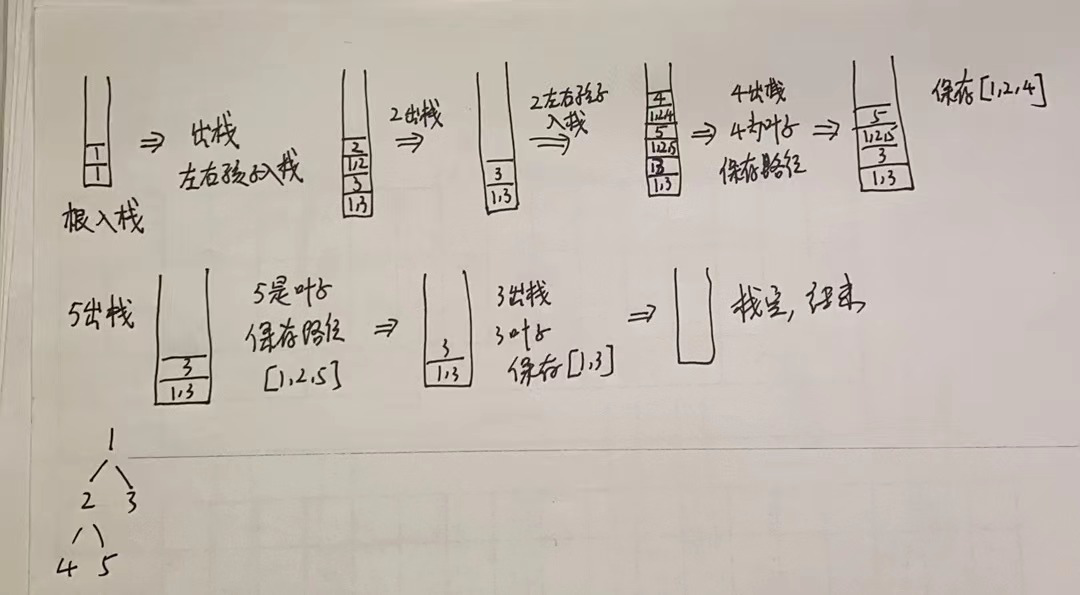 1
1
⇒
出栈
左右孩子入栈
根入栈
2
1,2
3
1,3
2出栈
⇒
3
1,3
2左右孩子
入栈
⇒
4
1,2,4
5
1,2,5
3
1,3
⇒
4出栈
4为叶子
保存路径
⇒
5
1,2,5
3
1,3
保存[1,2,4]
5出栈
3
1,3
5是叶子
保存路径
[1,2,5]
⇒
3
1,3
3出栈
3叶子
保存[1,3]
⇒
栈空,结束
1
2 3
4 5